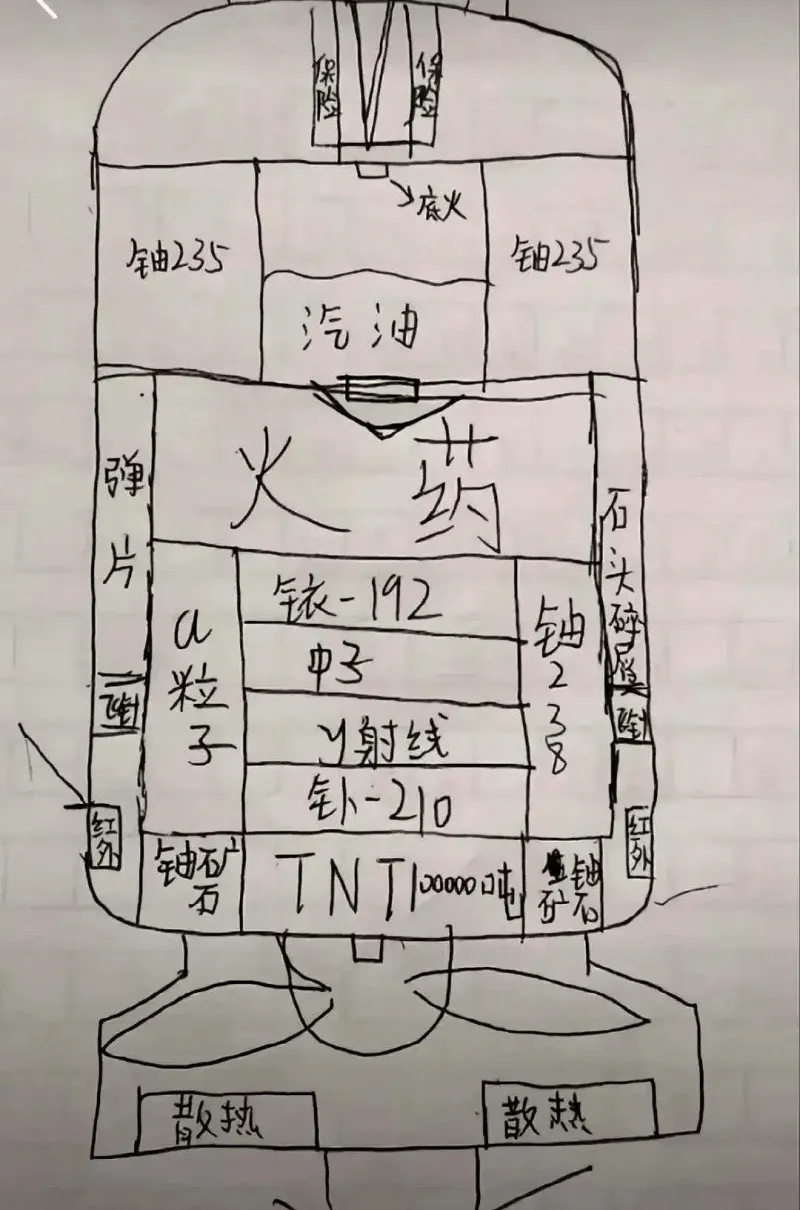 保险
保险
底火
铀235
铀235
汽油
火药
弹片
石头碎屑
铱-192
a粒子
中子
铀238
y射线
钋-210
红外
红外
铀矿石
TNT1000000吨
铀矿石
散热
散热